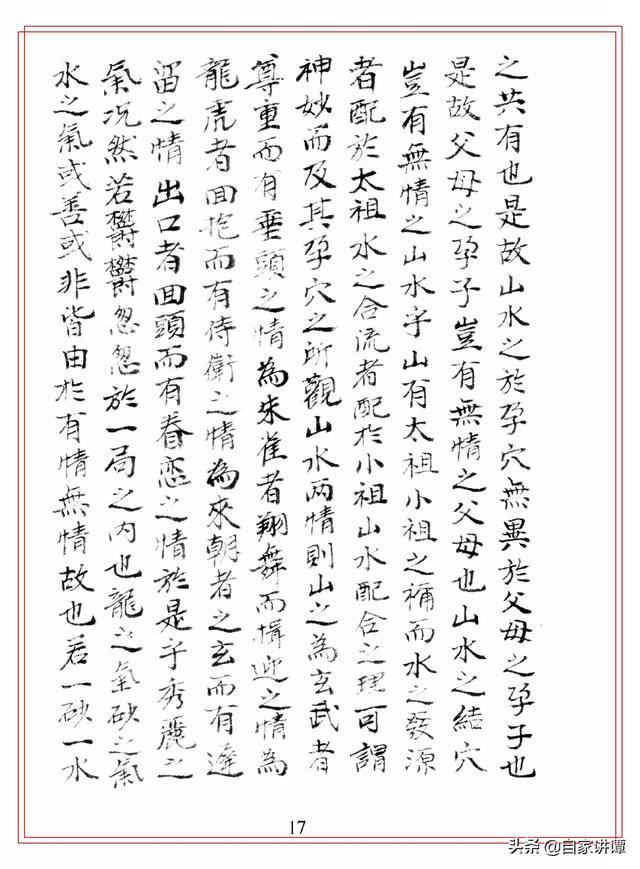 之共有也是故山水之於孕穴無異於父母之孕子也
是故父母之孕子豈有無情之父母也山水之結穴
豈有無情之山水乎山有太祖小祖之稱而水之發源
者配於太祖水之合流者配於小祖山水配合之理可謂
神妙而及其孕穴之所觀山水两情則山之為玄武者
尊重而有垂頭之情為朱雀者翔舞而揖迎之情為
龍虎者回抱而有侍衛之情為來朝者之玄而有達
留之情出口者回頭而有眷恋之情於是乎秀麗之
氣况然若欝欝忽忽於一局之内也龍之氣砂之氣
水之氣或善或非皆由於有情無情故也若一砂一水
17
头条 @自家讲谭